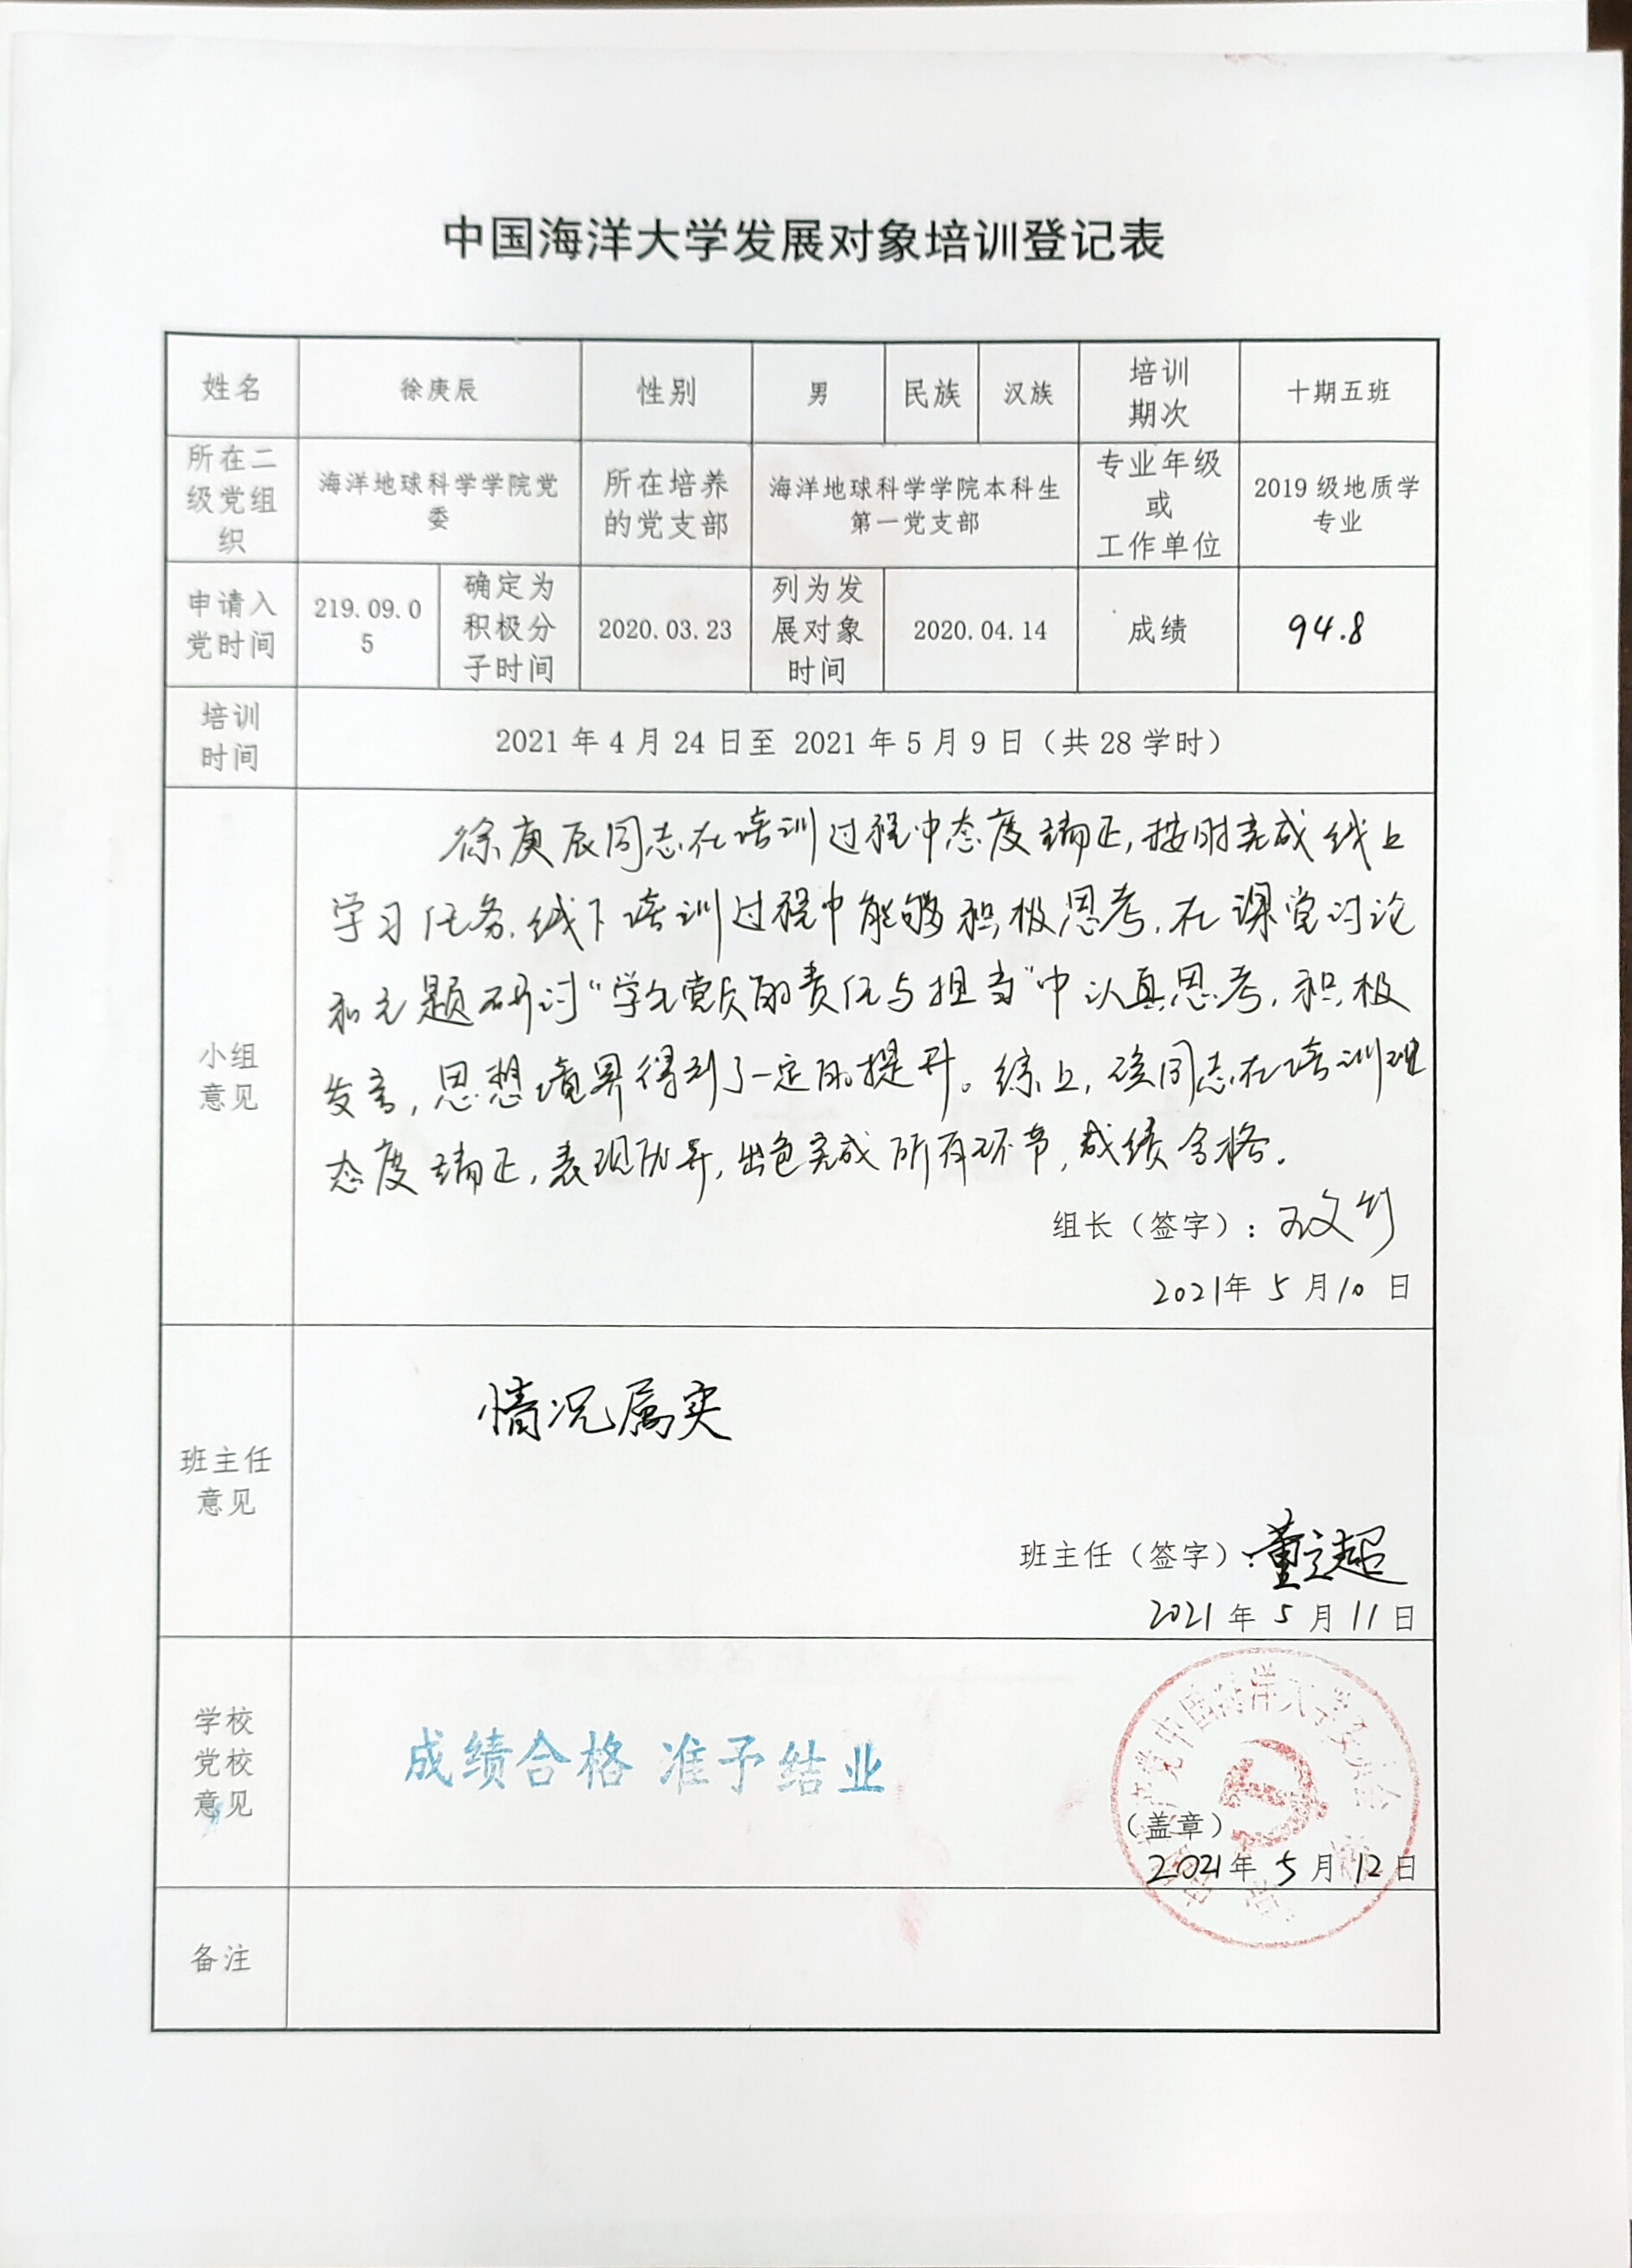 中国海洋大学发展对象培训登记表
姓名 徐庚辰 性别 男 民族 汉族 培训
期次 十期五班
所在二
级党组
织 海洋地球科学学院党
委 所在培养
的党支部 海洋地球科学学院本科生
第一党支部 专业年级
或
工作单位 2019级地质学
专业
申请入
党时间 219.09.0
5 确定为
积极分
子时间 2020.03.23 列为发
展对象
时间 2020.04.14 成绩 94.8
培训
时间 2021年4月24日至 2021年5月9日（共28学时）
小组
意见
徐庚辰同志在培训过程中态度端正,按时完成线上
学习任务.线下培训过程中能够积极思考.在课堂讨论
和主题研讨“学生党员的责任与担当”中认真思考,积极
发言,思想境界得到了一定的提升。综上,该同志在培训理
态度端正,表现优异,出色完成所有环节,成绩合格.
组长（签字）: 文
2021年 5 月 10 日
班主任
意见
情况属实
班主任（签字）: 董立超
2021 年 5 月 11 日
学校
党校
意见
成绩合格 准予结业
产党中国海洋大学委员会
（盖章）
2021年 5 月 12 日
备注